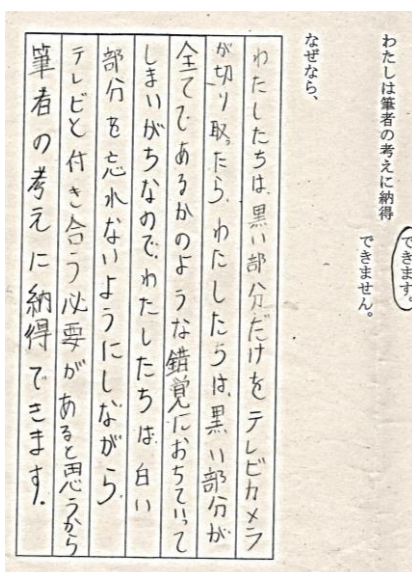 わたしは筆者の考えに納得
できます。
できません。
なぜなら、
わたしたちは、黒い部分だけをテレビカメラ
が切り取ったら、わたしたちは、黒い部分が
全てであるかのような錯覚におちていって
しまいがちなので、わたしたちは、白い
部分を忘れないようにしながら、
テレビと付き合う必要があると思うから
筆者の考えに納得できます。